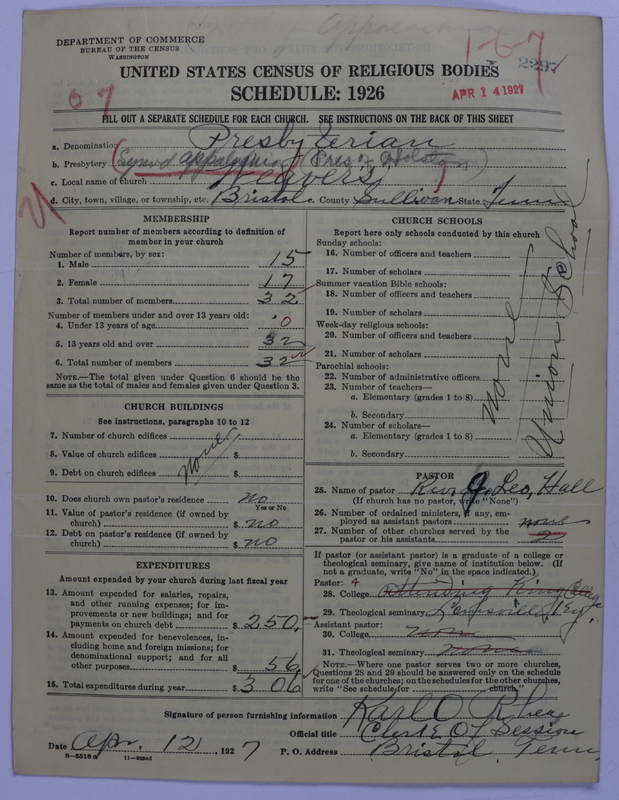 DEPARTMENT OF COMMERCE
BUREAU OF THE CENSUS
WASHINGTON
1-6-7
2297
UNITED STATES CENSUS OF RELIGIOUS BODIES
SCHEDULE: 1926
APR 14 1927
0 7
FILL OUT A SEPARATE SCHEDULE FOR EACH CHURCH. SEE INSTRUCTIONS ON THE BACK OF THIS SHEET
a. Denomination Presbyterian
b. Presbytery (Synod Appalachia) (Pres. of Holston)
c. Local name of church Weavers
d. City, town, village, or township, etc. Bristol County Sullivan State Tenn
MEMBERSHIP
Report number of members according to definition of member in your church
Number of members, by sex:
1. Male 15
2. Female 17
3. Total number of members 32
Number of members under and over 13 years old:
4. Under 13 years of age 0
5. 13 years old and over 32
6. Total number of members 32
NOTE.—The total given under Question 6 should be the same as the total of males and females given under Question 3.
CHURCH BUILDINGS
See instructions, paragraphs 10 to 12
7. Number of church edifices
8. Value of church edifices $
9. Debt on church edifices $
None
10. Does church own pastor's residence No
Yes or No.
11. Value of pastor's residence (if owned by church) $ no
12. Debt on pastor's residence (if owned by church) $ no
EXPENDITURES
Amount expended by your church during last fiscal year
13. Amount expended for salaries, repairs, and other running expenses; for improvements or new buildings; and for payments on church debt $ 250.
14. Amount expended for benevolences, including home and foreign missions; for denominational support; and for all other purposes $ 56
15. Total expenditures during year $ 306
CHURCH SCHOOLS
Report here only schools conducted by this church
Sunday schools:
16. Number of officers and teachers
17. Number of scholars
Summer vacation Bible schools:
18. Number of officers and teachers
19. Number of scholars
Week-day religious schools:
20. Number of officers and teachers
21. Number of scholars
Parochial schools:
22. Number of administrative officers
23. Number of teachers—
a. Elementary (grades 1 to 8)
b. Secondary
24. Number of scholars—
a. Elementary (grades 1 to 8)
b. Secondary
None
Union School
PASTOR
25. Name of pastor Rev. J. Leo, Hall
(If church has no pastor, write "None")
26. Number of ordained ministers, if any, employed as assistant pastors none
27. Number of other churches served by the pastor or his assistants 2
If pastor (or assistant pastor) is a graduate of a college or theological seminary, give name of institution below. (If not a graduate, write "No" in the space indicated.)
Pastor: 4
28. College Attending King College
29. Theological seminary Louisville Ky.
Assistant pastor:
30. College none
31. Theological seminary none
NOTE.—Where one pastor serves two or more churches, Questions 28 and 29 should be answered only on the schedule for one of the churches; on the schedules for the other churches, write "See schedule for church."
Signature of person furnishing information Karl O. Rhea
Official title Clerk Of Session
Date Apr. 12, 1927 P. O. Address Bristol, Tenn.